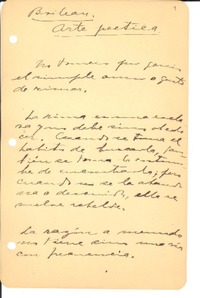 Boileau.
Arte poetica
No tomeis por genio
el simple amor o gusto
de rimar.
La rima es una escla-
va y no debe sino obede-
cer. Cuando se toma el
hábito de buscarla, 
se toma la costum-
bre de encontrarla; pero
cuando se la 
a descuido, ella se
vuelve rebelde.
La razón a menudo
no tiene sino una